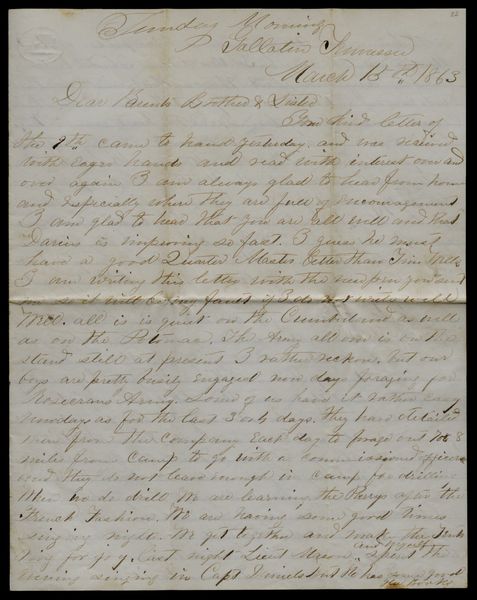 Sunday Morning
Gallatin Tennessee
March 15th 1863
Dear Parents Brother & Sister
Your kind letter of
the 9th came to hand yesterday and was received
with eager hand and read with interest over and
over again I am always glad to hear from home
and especially when they are full of encouragement
I am glad to hear that you are all well and that
Darius is improving so fast. I guess he must
have a good Quarter Master better than Tim Mills
I am writing this letter with the new pen you sent
me so it will be my fault if I do not write it
well. all is is quiet on the Cumberland as well
as on the Potomac. The Army all over is on the
stand still at present I rather reckon, but our
boys are pretty busily engaged now days foraging for
Rosecrans Army. Some of us have it rather easy
nowdays as for the last 3 or 4 days. they have detailed
men from the company each day to forage out 7 or 8
miles from camp to go with a commissioned officer
and they do not leave enough in camp for drilling
When we do drill We are learning the
French Fashion. We are having some good times
singing nights. We get together and make the tents
ring for joy. Last night Lieut and myself spent the
evening singing in Capt he has some good
Books